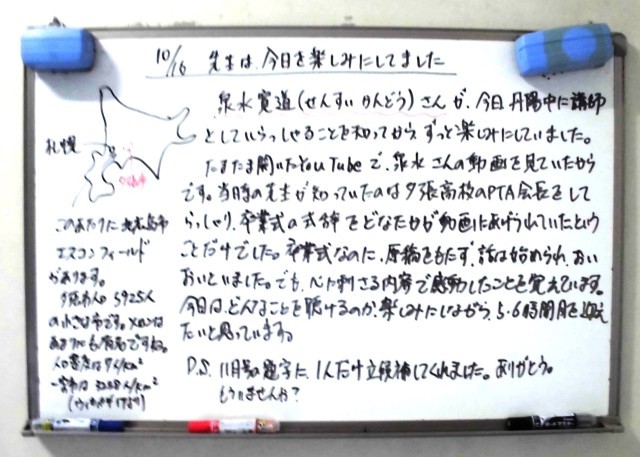 10/16 先生は、今日を楽しみにしてました
泉水寛道(せんすい かんどう)さんが、今日、丹陽中に講師
としていらっしゃることを知ってから、ずっと楽しみにしていました。
たまたま開いたYouTubeで、泉水さんの動画を見ていたから
です。当時の先生が知っていたのは夕張高校のPTA会長をして
らっしゃり、卒業式の式辞をどなたかが動画にあげられていたという
ことだけでした。卒業式なのに、原稿をもたず、話は始められ、おい
おいと いました。でも、心に刺さる内容で感動したことを覚えています。
今日は、どんなことを聴けるのか、楽しみにしながら、5・6時間目を迎え
たいと思っています。
P.S. 11月号の題字に、1人だけ立候補してくれました。ありがとう。
もういませんか?
札幌
夕張市
このあたりに北広島市
エスコンフィールド
があります。
夕張市の人口 5925人
の小さな市です。メロンは
あまりにも有名ですね。
人口密度は 9人/km²
一宮市は 人/km²
(ウィキペディアより)